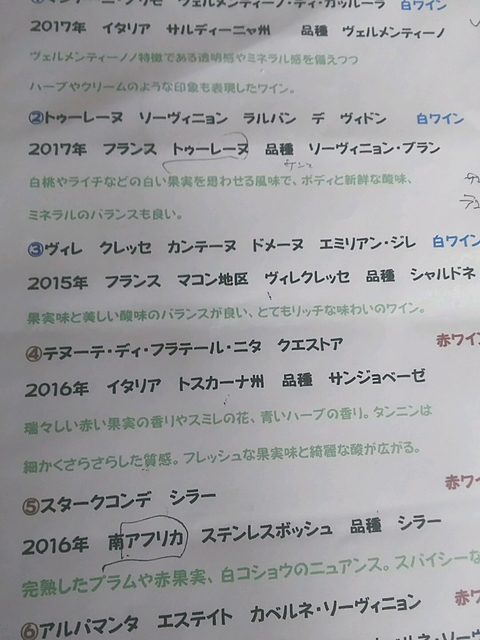 ヴェルメンティーノ・ディ・ガッルーラ 白ワイン
2017年 イタリア サルディーニャ州 品種 ヴェルメンティーノ
ヴェルメンティーノノ特徴である透明感やミネラル感を備えつつ
ハーブやクリームのような印象も表現したワイン。
②トゥーレーヌ ソーヴィニョン ラルパン デ ヴィドン 白ワイン
2017年 フランス トゥーレーヌ 品種 ソーヴィニョン・ブラン
白桃やライチなどの白い果実を思わせる風味で、ボディと新鮮な酸味、
ミネラルのバランスも良い。
③ヴィレ クレッセ カンテーヌ ドメーヌ エミリアン・ジレ 白ワイン
2015年 フランス マコン地区 ヴィレクレッセ 品種 シャルドネ
果実味と美しい酸味のバランスが良い、とてもリッチな味わいのワイン。
④テヌーテ・ディ・フラテール・ニタ クエストア 赤ワイン
2016年 イタリア トスカーナ州 品種 サンジョベーゼ
瑞々しい赤い果実の香りやスミレの花、青いハーブの香り。タンニンは
細かくさらさらした質感。フレッシュな果実味と綺麗な酸が広がる。
⑤スタークコンデ シラー 赤ワイ
2016年 南アフリカ ステンレスボッシュ 品種 シラー
完熟したプラムや赤果実、白コショウのニュアンス。スパイシーな
⑥アルパマンタ エステイト カベルネ・ソーヴィニョン 赤ワ